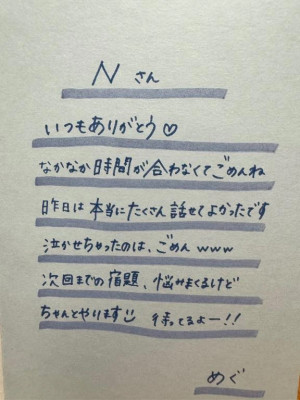 Nさん
いつもありがとう♡
なかなか時間が合わなくてごめんね
昨日は本当にたくさん話せてよかったです
泣かせちゃったのは、ごめんwww
次回までの宿題、悩みまくるけど
ちゃんとやります☺ 待ってるよー!!
めぐ